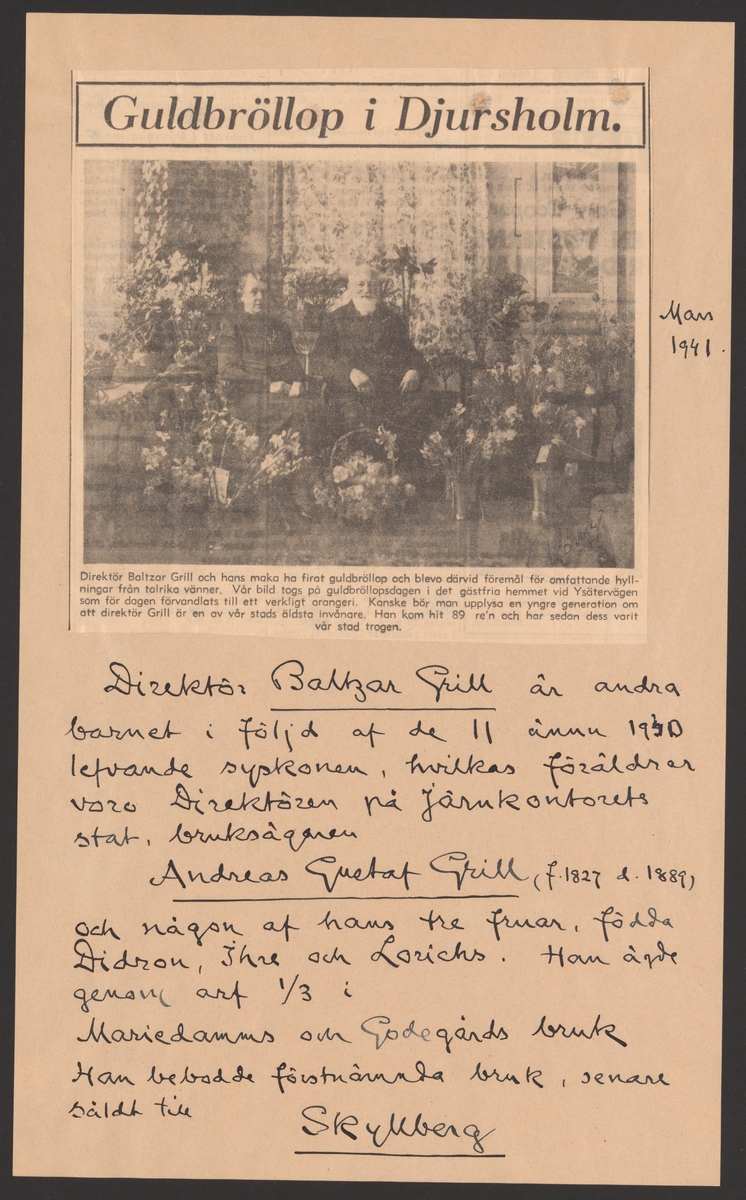 Guldbröllop i Djursholm.
Mars
1941.
Direktör Baltzar Grill och hans maka ha firat guldbröllop och blevo därvid föremål för omfattande hyll-
ningar från talrika vänner. Vår bild togs på guldbröllopsdagen i det gästfria hemmet vid Ysätervägen
som för dagen förvandlats till ett verkligt orangeri. Kanske bör man upplysa en yngre generation om
att direktör Grill är en av vår stads äldsta invånare. Han kom hit 89 re'n och har sedan dess varit
vår stad trogen.
Direktör Baltzar Grill är andra
barnet i följd af de 11 ännu 1940
lefvande syskonen, hvilkas föräldrar
voro Direktören på Järnkontorets
stat, bruksägaren
Andreas Gustaf Grill (f. 1827 d. 1889)
och någon af hans tre fruar, födda
Didron, Ihre och Lorichs. Han ägde
genom arf 1/3 i
Mariedamms och Godegårds bruk
Han bebodde förstnämnda bruk, senare
såldt till
Skyllberg